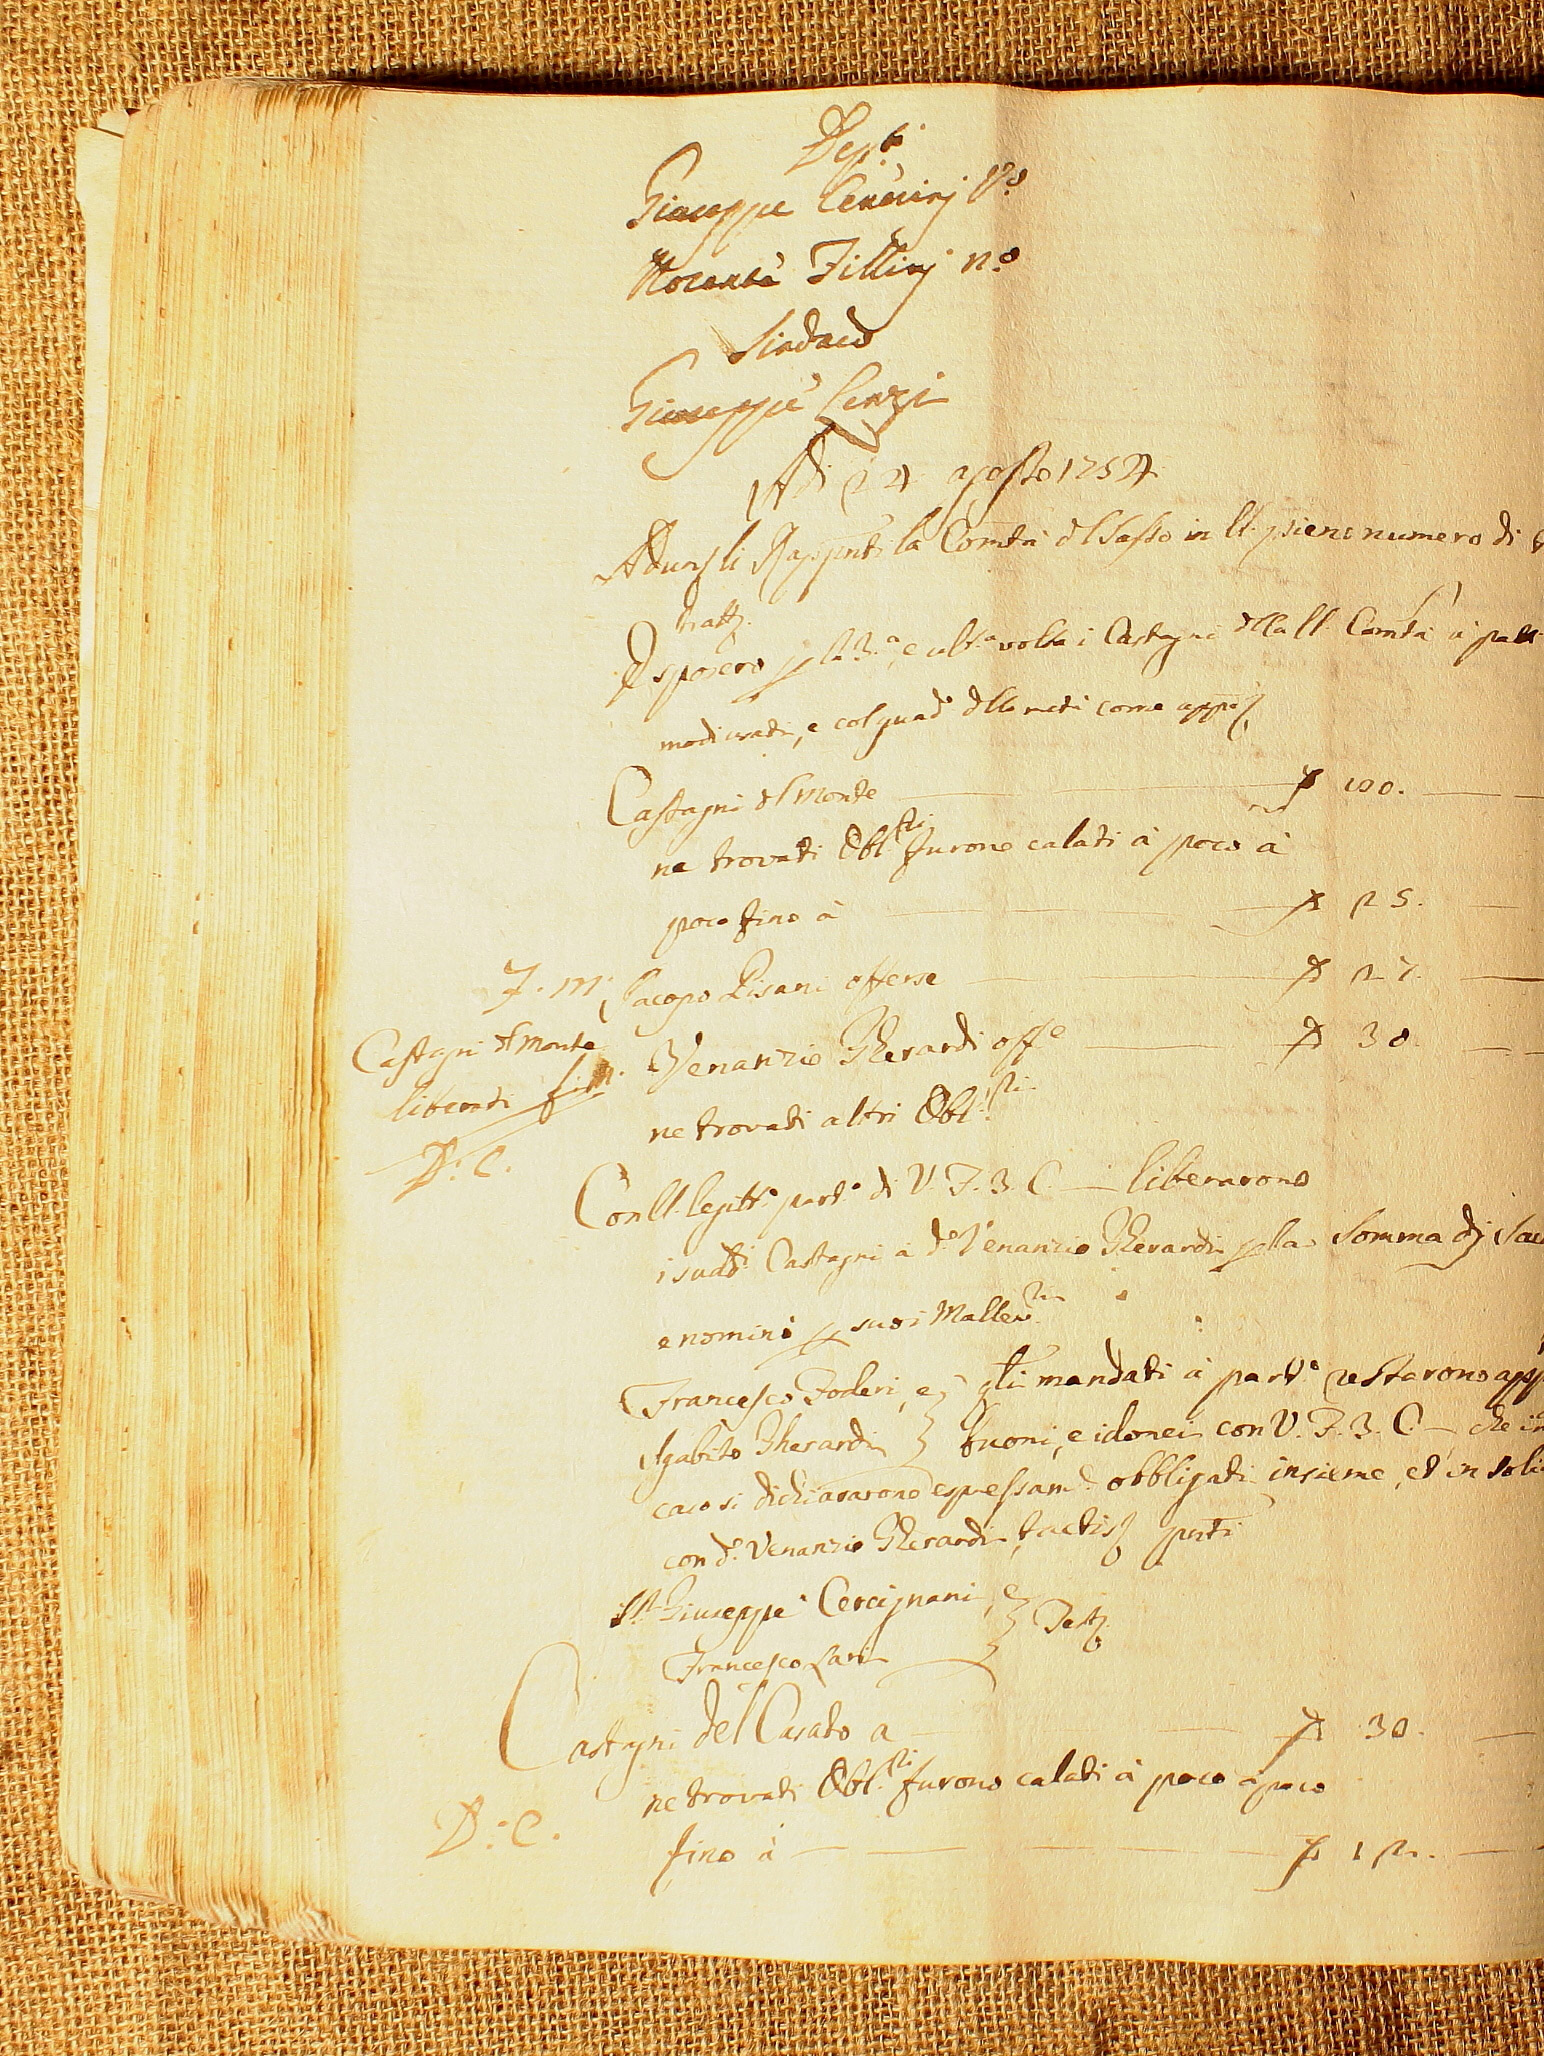 Dep.ti
Giuseppe
n.o
Sindaco
Giuseppe Lenzi
Adi 24 agosto 1754
Adun. li Rapp.nti la Com.tà del Sasso in ll. pieno numero di
tratt.
Esposero p la 3.a, e ult.a volta i Castagni della ll. Com.tà a
e col guad.o della metà come app.o
Castagni del Monte — 100. —
ne trovati Obl.ri furono calati à poco à
poco fino à — 25. —
F. m. Jacopo Pisani offerse — 27. —
Castagni del Monte
liberati
D: C.
Venanzio Gherardi off.e — 30. —
ne trovati altri Obl.ri
Con ll. legitt.o part.o di V. F. 3. C. — liberarono
i sudd.i Castagni a d.o Venanzio Gherardi p la Somma di
e nominò p suoi Mallev.ri
Francesco Foderi, e } gli mandati à part.o restarono
Agabito Gherardi } buoni, e idonei con V. F. 3. C. — che in
caso si dichiararono espressam.e obbligati insieme, et in
con d.o Venanzio Gherardi, tactis
Giuseppe Cercignani, e } Test.
Francesco Lari
Castagni del Casato a — 30. —
ne trovati Obl.ri furono calati à poco à poco
D: C.
fino à — 12. —